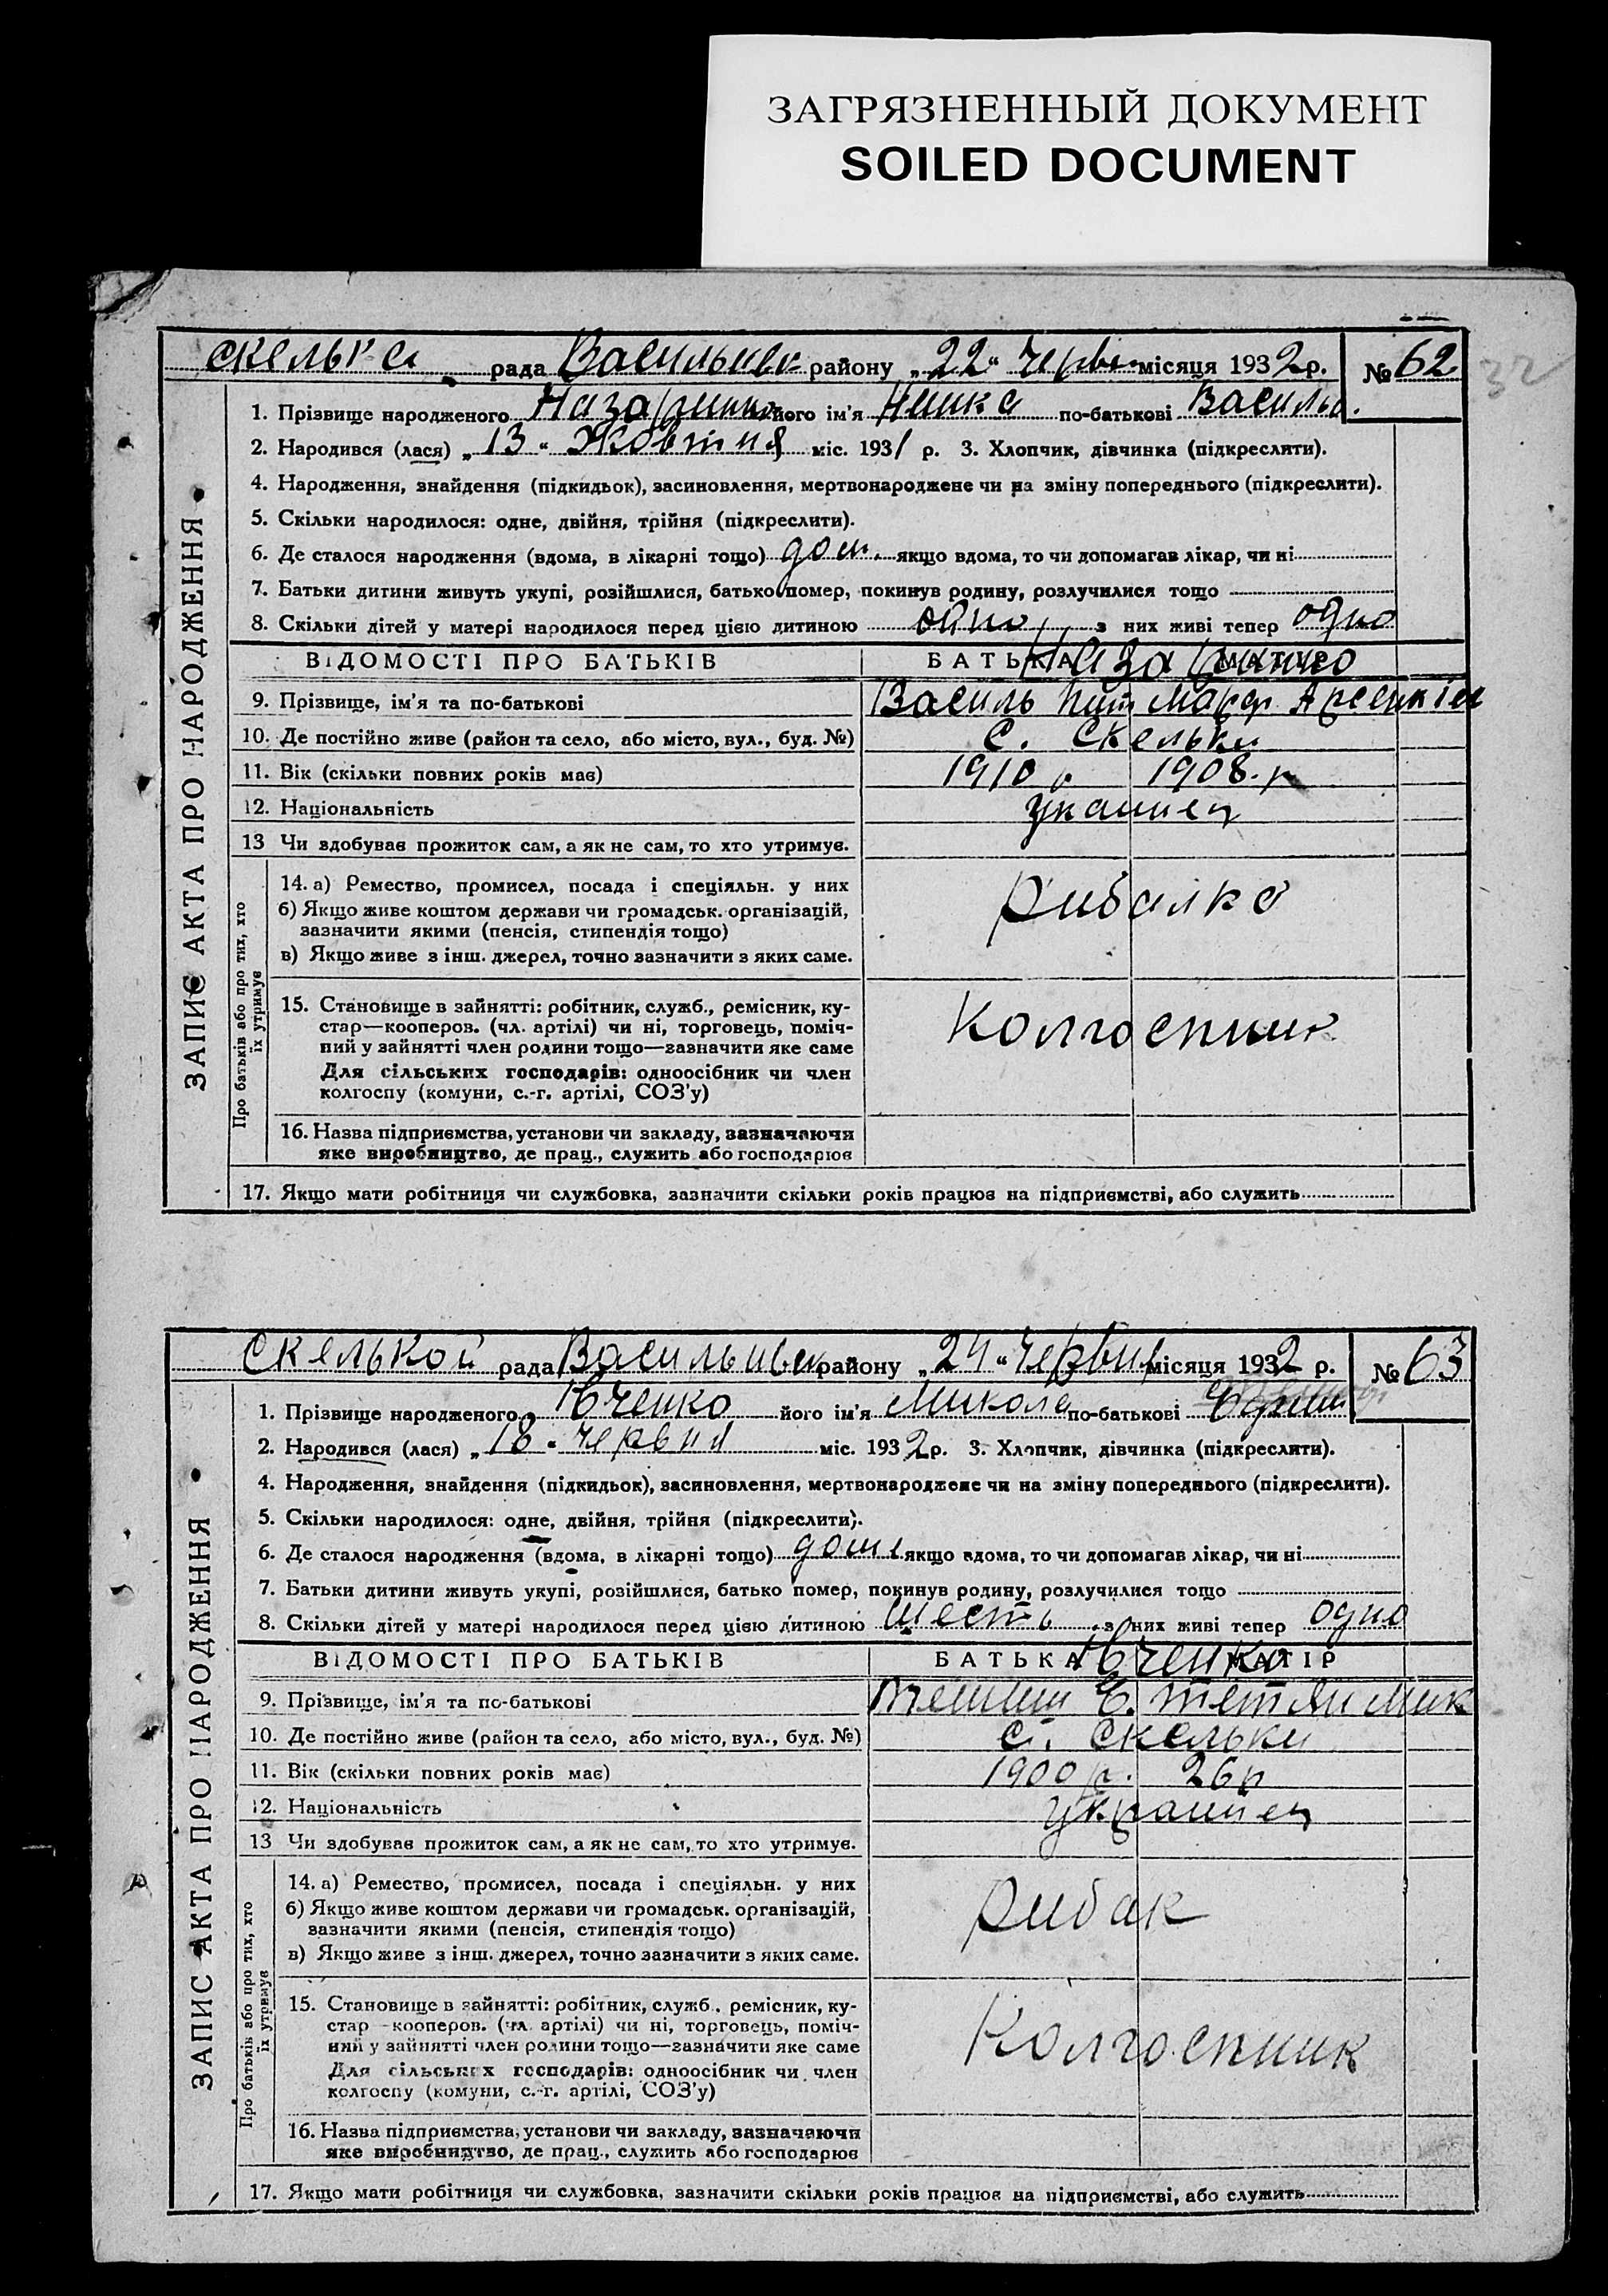 ЗАГРЯЗНЕННЫЙ ДОКУМЕНТ
SOILED DOCUMENT
32
рада районy „22“ місяця 1932 р. № 62
ЗАПИС АКТА ПРО НАРОДЖЕННЯ
1. Прізвище народженого його ім'я по-батькові
2. Народився (лася) „13“ Жовтня міс. 1931 р. 3. Хлопчик, дівчинка (підкреслити).
4. Народження, знайдення (підкидьок), засиновлення, мертвонароджене чи на зміну попереднього (підкреслити).
5. Скільки народилося: одне, двійня, трійня (підкреслити).
6. Де сталося народження (вдома, в лікарні тощо) дом. якщо вдома, то чи допомагав лікар, чи ні
7. Батьки дитини живуть укупі, розійшлися, батько помер, покинув родину, розлучилися тощо
8. Скільки дітей у матері народилося перед цією дитиною з них живі тепер одно
ВІДОМОСТІ ПРО БАТЬКІВ БАТЬКА МАТІР
9. Прізвище, ім'я та по-батькові Василь
10. Де постійно живе (район та село, або місто, вул., буд. №) С. Скельки
11. Вік (скільки повних років має) 1910 р 1908. р
12. Національність
13 Чи здобуває прожиток сам, а як не сам, то хто утримує.
Про батьків або про тих, хто їх утримує
14. а) Ремество, промисел, посада і спеціяльн. у них рибалка
б) Якщо живе коштом держави чи громадськ. організацій,
зазначити якими (пенсія, стипендія тощо)
в) Якщо живе з інш. джерел, точно зазначити з яких саме.
15. Становище в зайнятті: робітник, служб., ремісник, ку-
стар—кооперов. (чл. артілі) чи ні, торговець, поміч- Колгоспник
ний у зайнятті член родини тощо—зазначити яке саме
Для сільських господарів: одноосібник чи член
колгоспу (комуни, с.-г. артілі, СОЗ'у)
16. Назва підприємства, установи чи закладу, зазначаючи
яке виробництво, де прац., служить або господарює
17. Якщо мати робітниця чи службовка, зазначити скільки років працює на підприємстві, або служить
Скелькой рада районy „24“ Червня місяця 1932 р. № 63
ЗАПИС АКТА ПРО НАРОДЖЕННЯ
1. Прізвище народженого Ювченко його ім'я Микола по-батькові
2. Народився (лася) „18“ червня міс. 1932 р. 3. Хлопчик, дівчинка (підкреслити).
4. Народження, знайдення (підкидьок), засиновлення, мертвонароджене чи на зміну попереднього (підкреслити).
5. Скільки народилося: одне, двійня, трійня (підкреслити).
6. Де сталося народження (вдома, в лікарні тощо) якщо вдома, то чи допомагав лікар, чи ні
7. Батьки дитини живуть укупі, розійшлися, батько помер, покинув родину, розлучилися тощо
8. Скільки дітей у матері народилося перед цією дитиною шесть з них живі тепер одно
ВІДОМОСТІ ПРО БАТЬКІВ БАТЬКА МАТІР
9. Прізвище, ім'я та по-батькові
10. Де постійно живе (район та село, або місто, вул., буд. №) С. Скельки
11. Вік (скільки повних років має) 1900 р. 26 р
12. Національність
13 Чи здобуває прожиток сам, а як не сам, то хто утримує.
Про батьків або про тих, хто їх утримує
14. а) Ремество, промисел, посада і спеціяльн. у них рибак
б) Якщо живе коштом держави чи громадськ. організацій,
зазначити якими (пенсія, стипендія тощо)
в) Якщо живе з інш. джерел, точно зазначити з яких саме.
15. Становище в зайнятті: робітник, служб., ремісник, ку-
стар—кооперов. (чл. артілі) чи ні, торговець, поміч- Колгоспник
ний у зайнятті член родини тощо—зазначити яке саме
Для сільських господарів: одноосібник чи член
колгоспу (комуни, с.-г. артілі, СОЗ'у)
16. Назва підприємства, установи чи закладу, зазначаючи
яке виробництво, де прац., служить або господарює
17. Якщо мати робітниця чи службовка, зазначити скільки років працює на підприємстві, або служить